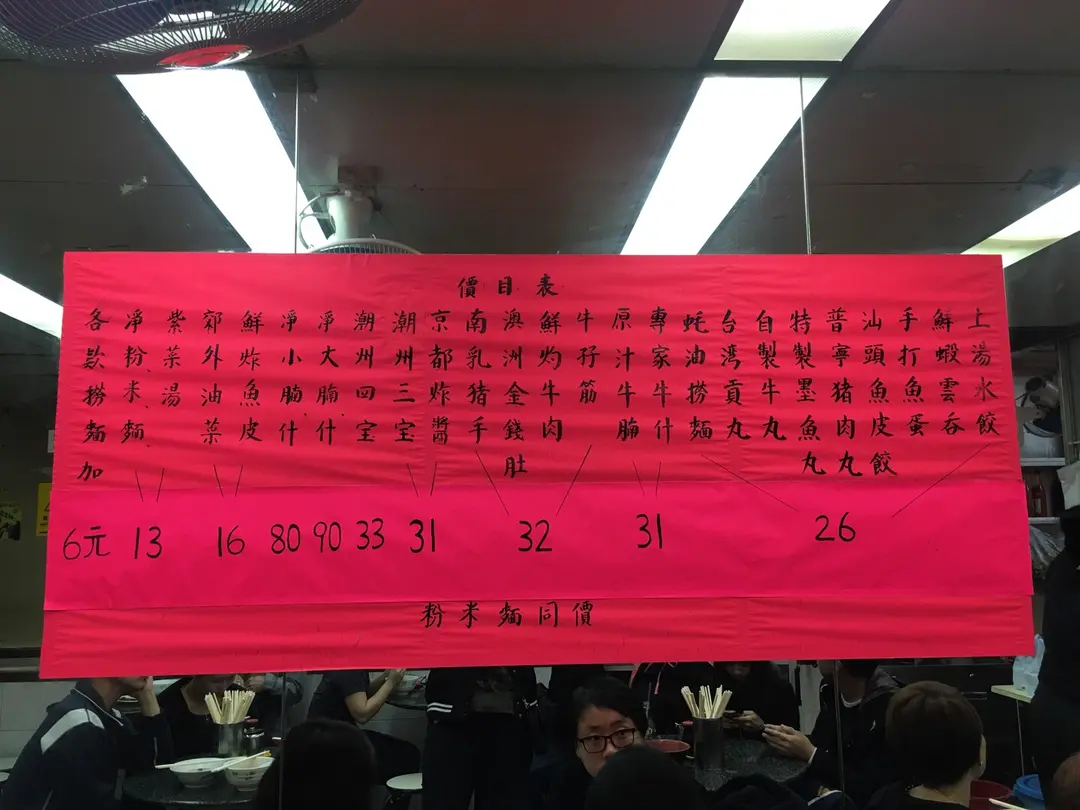 價目表
上湯水餃
鮮蝦雲吞
手打魚蛋
汕頭魚皮餃
普寧猪肉丸
特製墨魚丸
自製牛丸
台湾貢丸
蚝油撈麵
26
專家牛什
原汁牛腩
31
牛孖筋
鮮灼牛肉
澳洲金錢肚
南乳猪手
32
京都炸醬
潮州三宝
31
潮州四宝
33
凈大腩什
90
凈小腩什
80
鮮炸魚皮
郊外油菜
16
紫菜湯
凈粉、米、麵
13
各款撈麵加
6元
粉米麵同價